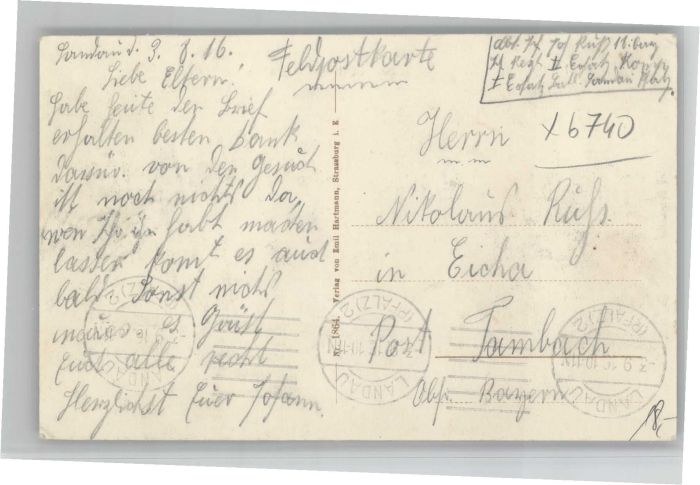 Landau d. 3. 9. 16.
Liebe Eltern!
Habe heute den Brief
erhalten besten Dank
dafür. von den Gesuch
ist noch nichts da
wen Ihr habt machen
lassen komt es auch
bald Sonst nichts
neues es Grüßt
Euch alle recht
Herzlichst Euer Johann.
Feldpostkarte
II Ersatz
Ersatz Batl. Landau Pfalz.
Herrn X6740
Nikolaus Rühs.
in Eicha
Post Tambach
Obfr. Bayern
Nr. 1864. Verlag von Emil Hartmann, Strassburg i. E
LANDAU (PFALZ) 2
LANDAU (PFALZ) 2
LANDAU (PFALZ) 2
18,-